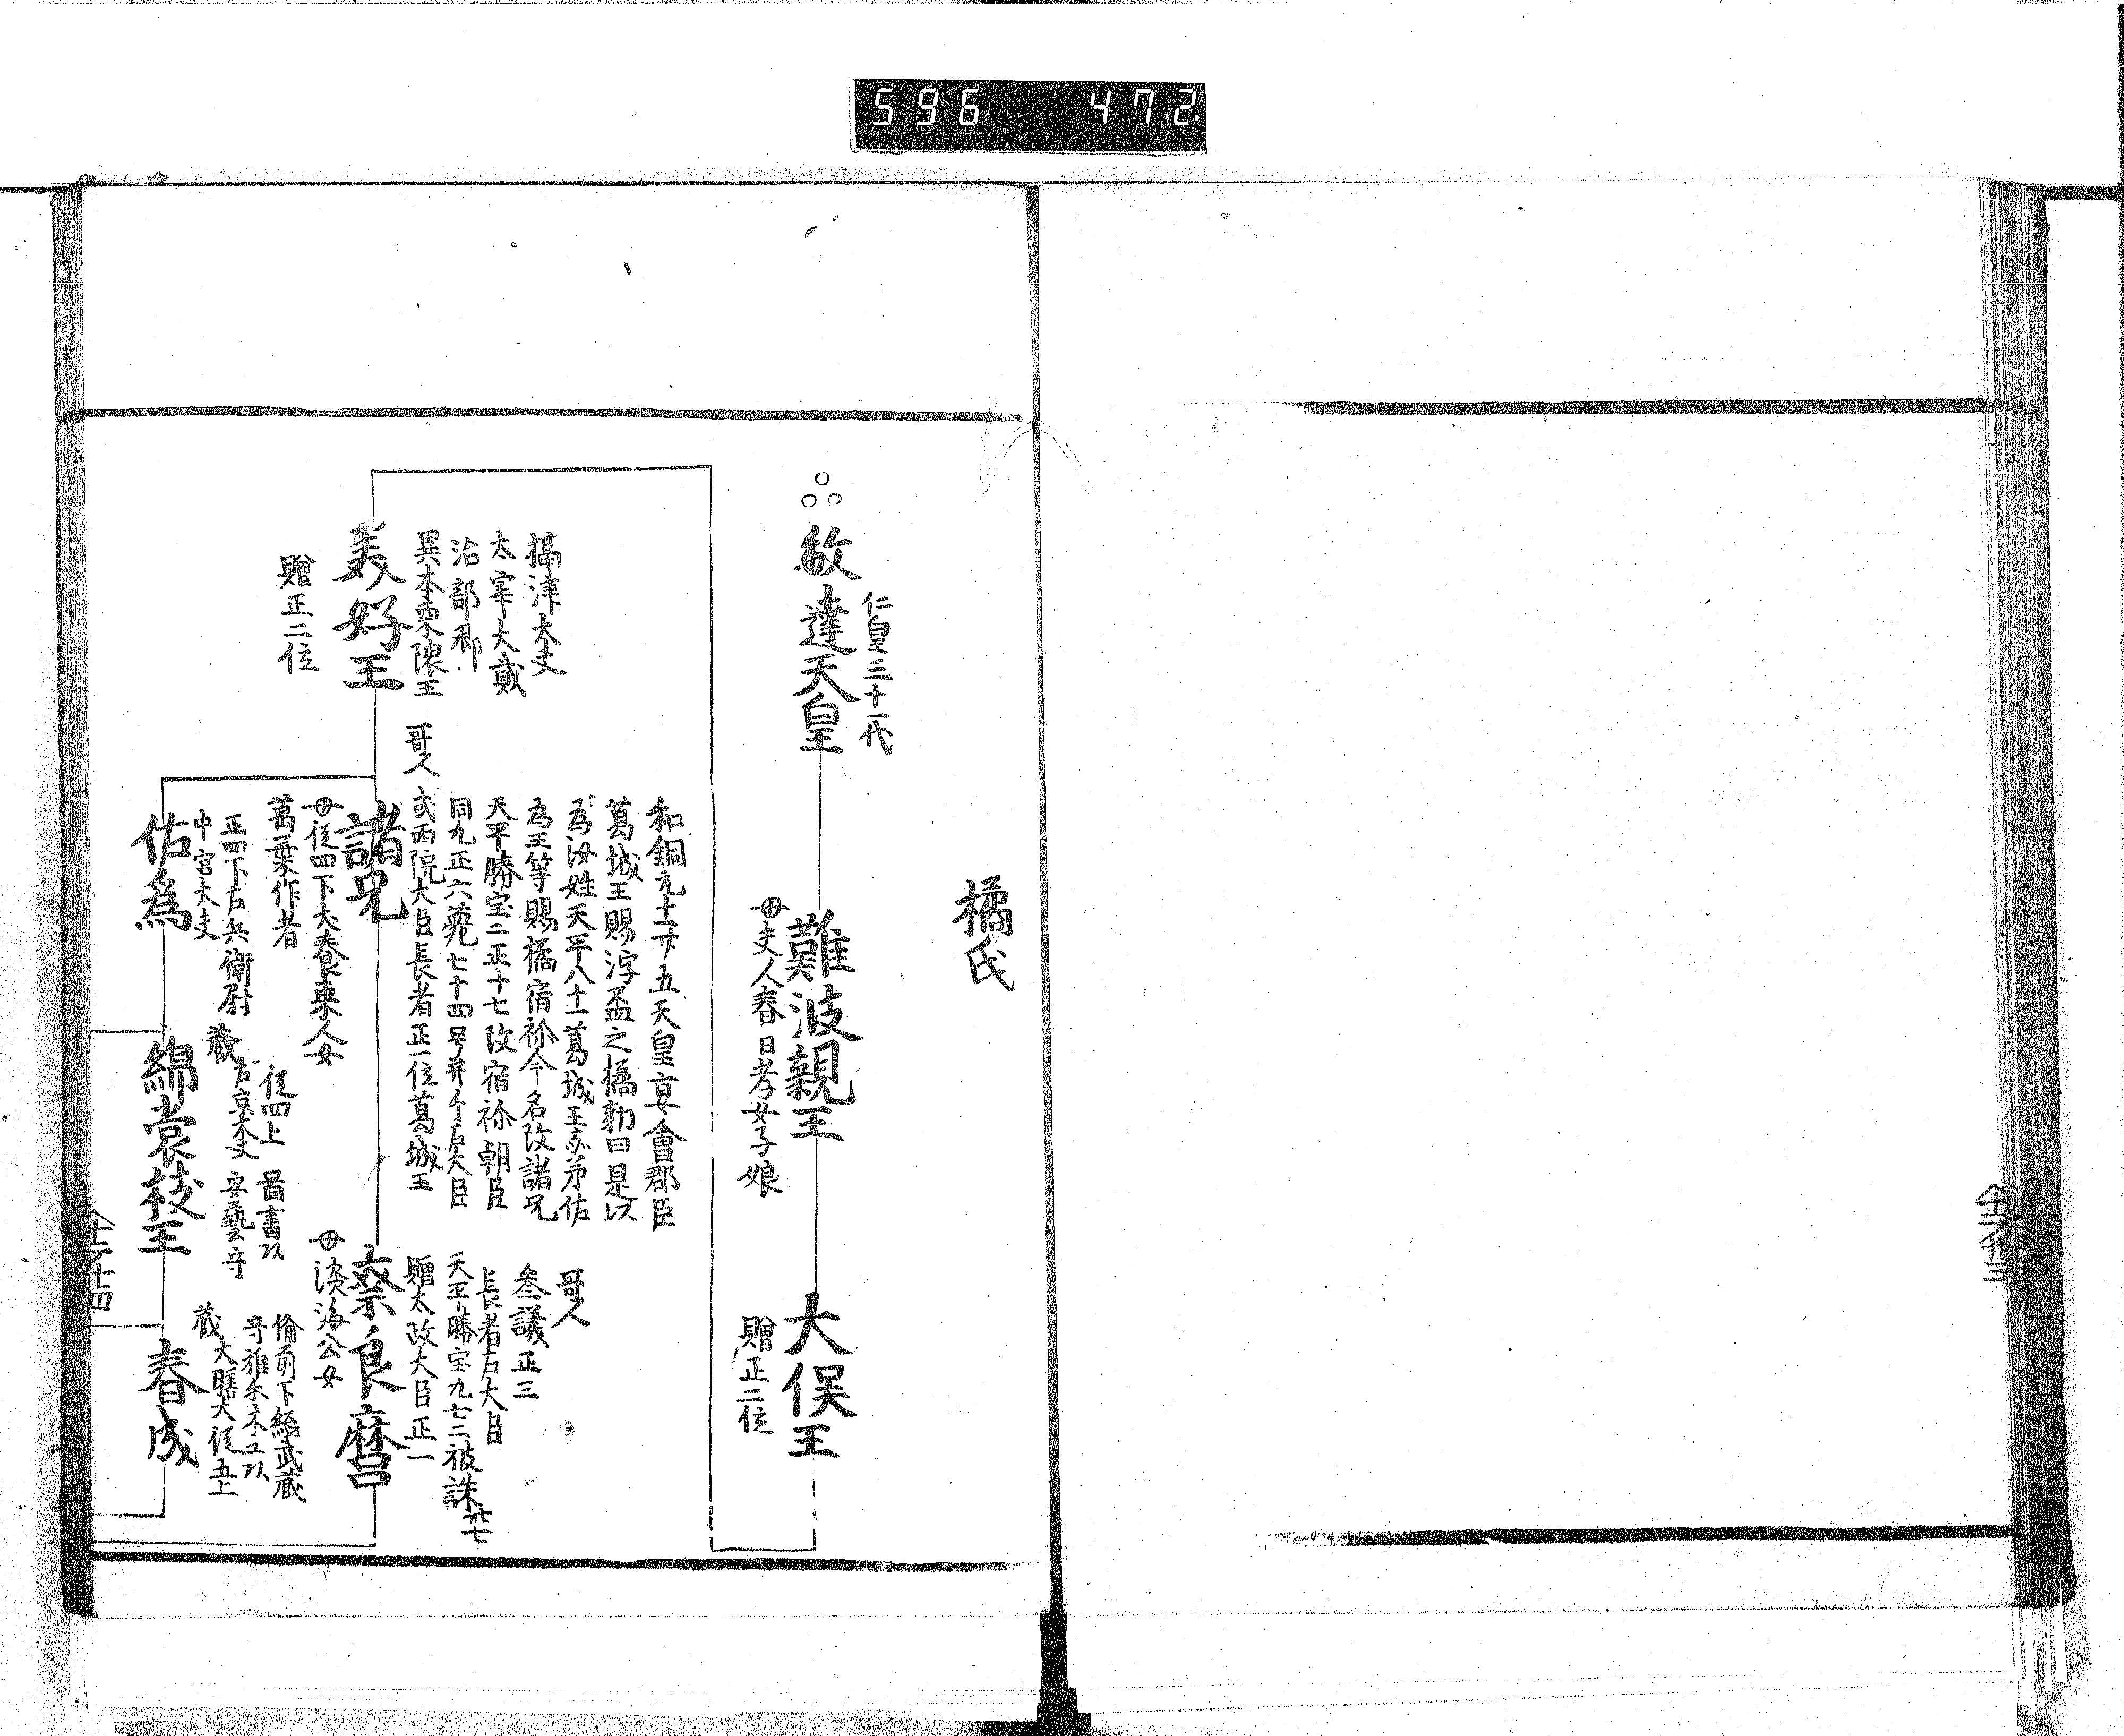 596 472
橘氏
仁皇三十一代
敏達天皇
難波親王
母夫人春日孝女子娘
大俣王
贈正二位
摂津大夫
太宰大貳
治部卿
異本栗隈王
美好王
贈正二位
和銅元十一廿五天皇宴會郡臣
葛城王賜浮盃之橘勅曰是以
為汝姓天平八十一葛城王亦弟佐
為王等賜橘宿祢今名改諸兄
天平勝宝二正十七改宿祢朝臣
同九正六薨七十四号井手左大臣
或西院大臣長者正一位葛城王
哥人
諸兄
母従四下大養東人女
萬葉作者
哥人
参議正三
長者右大臣
天平勝宝九七二被誅卅七
贈太政大臣正一
奈良麿
母淡海公女
正四下右兵衛尉
中宮大夫
佐為
従四上 啚書以
右京大夫 安藝守
蔵
綿裳枝王
備前下総武蔵
守雅木工以
大膳大従五上
蔵
春成